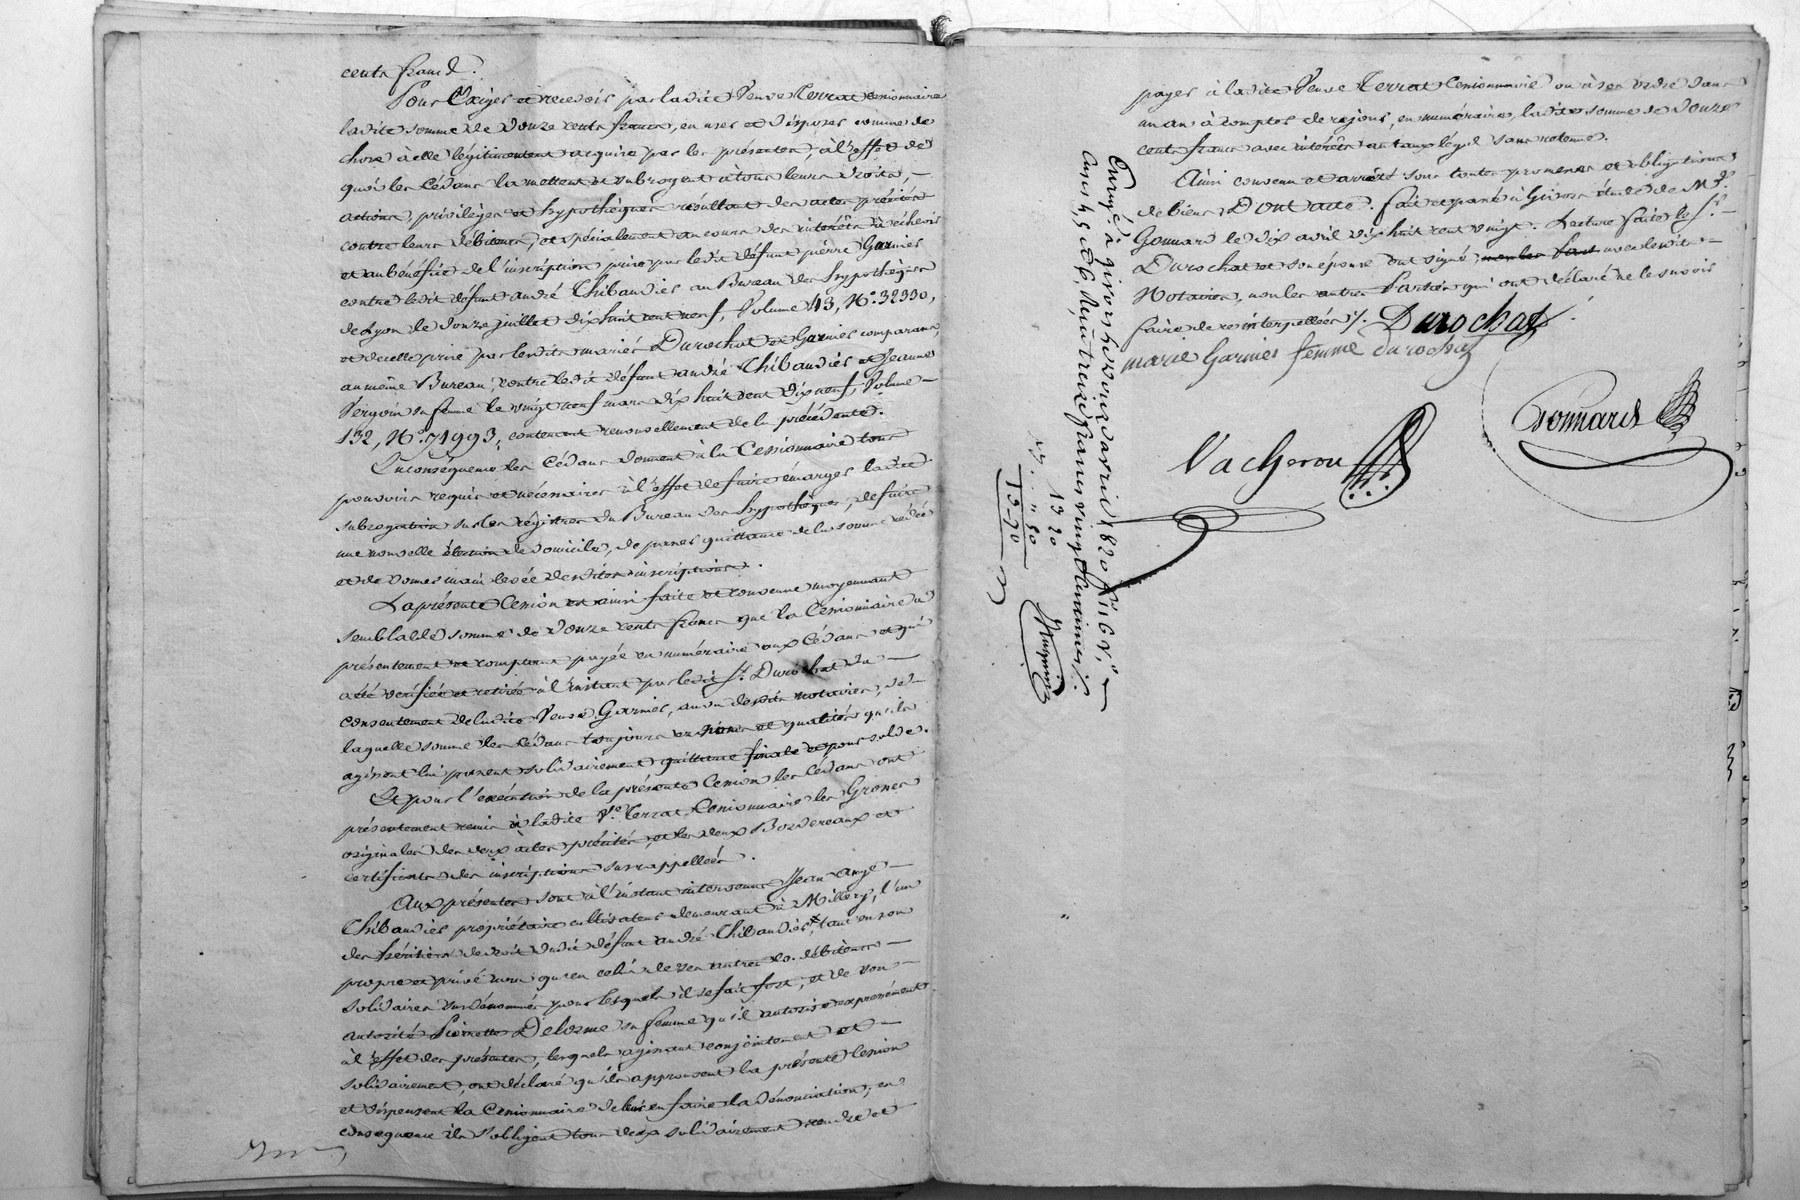 cents francs.
Pour Exiger et recevoir par ladite Veuve Terrat Cessionnaire
ladite somme de Douze cents francs, en user et disposer comme de
chose à elle légitimement acquise par les présentes, à l'effet de
quoi les Cédans la mettent et subrogent à tous leurs droits,
actions, privilèges et hypothèques résultant des actes précités
contre leurs débiteurs, et spécialement au cours des intérêts à échoir
et au bénéfice de l'inscription prise par ledit défunt pierre Garnier
contre ledit défunt andré Thibaudier au Bureau des hypothèques
de Lyon le douze juillet dix huit cent neuf, Volume 43, N.º 32990,
et de celle prise par lesdits mariés Durochat et Garnier comparans,
au même Bureau, contre ledit défunt andré Thibaudier et Jeanne
Vergoin sa femme le vingt neuf mars dix huit cent dix neuf, Volume
132, N.º 71993, contenant renouvellement de la précédente.
En conséquence les Cédans donnent à la Cessionnaire tous
pouvoirs requis et nécessaires à l'effet de faire émarger ladite
subrogation sur les régistres du Bureau des hypothèques, de faire
une nouvelle élection de domicile, de passer quittance de la somme cédée
et de donner main levée desdites inscriptions.
La présente Cession est ainsi faite et convenue moyennant
semblable somme de Douze cents francs que la Cessionnaire a
présentement et comptant payée en numéraire aux Cédans et qui
a été vérifiée et retirée à l'instant par ledit S.r Durochat du
consentement de ladite Veuve Garnier, au vu desdits notaires, de
laquelle somme les Cédans toujours ez noms et qualités qu'ils
agissent lui passent solidairement quittance finale et pour solde.
Et pour l'exécution de la présente Cession les Cédans ont
présentement remis à ladite V.e Terrat Cessionnaire les Grosses
originales des deux actes précités, et les deux Bordereaux et
certificats des inscriptions susrappellées.
Aux présentes sont à l'instant intervenus Jean ange
Thibaudier propriétaire cultivateur demeurant à Millery, l'un
des héritiers de droit dudit défunt andré Thibaudier, tant en son
propre et privé nom qu'en celui de ses autres co. débiteurs
solidaires susdénommés pour lesquels il se fait fort, et de son
autorité Pierrette Delorme sa femme qu'il autorise expressément
à l'effet des présentes, lesquels agissant conjointement et
solidairement, ont déclaré qu'ils approuvent la présente Cession
et dispensent la Cessionnaire de leur en faire la dénonciation, en
conséquence ils s'obligent tous deux solidairement rendre et
payer à ladite Veuve Terrat Cessionnaire ou à son ordre dans
un an à compter de ce jour, en numéraire, ladite somme de Douze
cents francs avec intérêts au taux légal sans retenue.
Ainsi convenu et arrêté sous toutes promesses et obligations
de biens, Dont acte. fait et passé à Givors étude de M.e
Gonnard le dix avril dix huit cent vingt. Lecture faite le S.r
Durochat et son épouse ont signé, avec lesdits
Notaires, non les autres Parties qui ont déclaré ne le savoir
faire de ce interpellées ./. Durochat
marie Garnier femme durochat
Gonnard
Vacheron
Enregé à givors le douze avril 1820 f.º 116 v.º
Cases 4, 5 et 6, Reçu treize francs vingt centimes
13 20